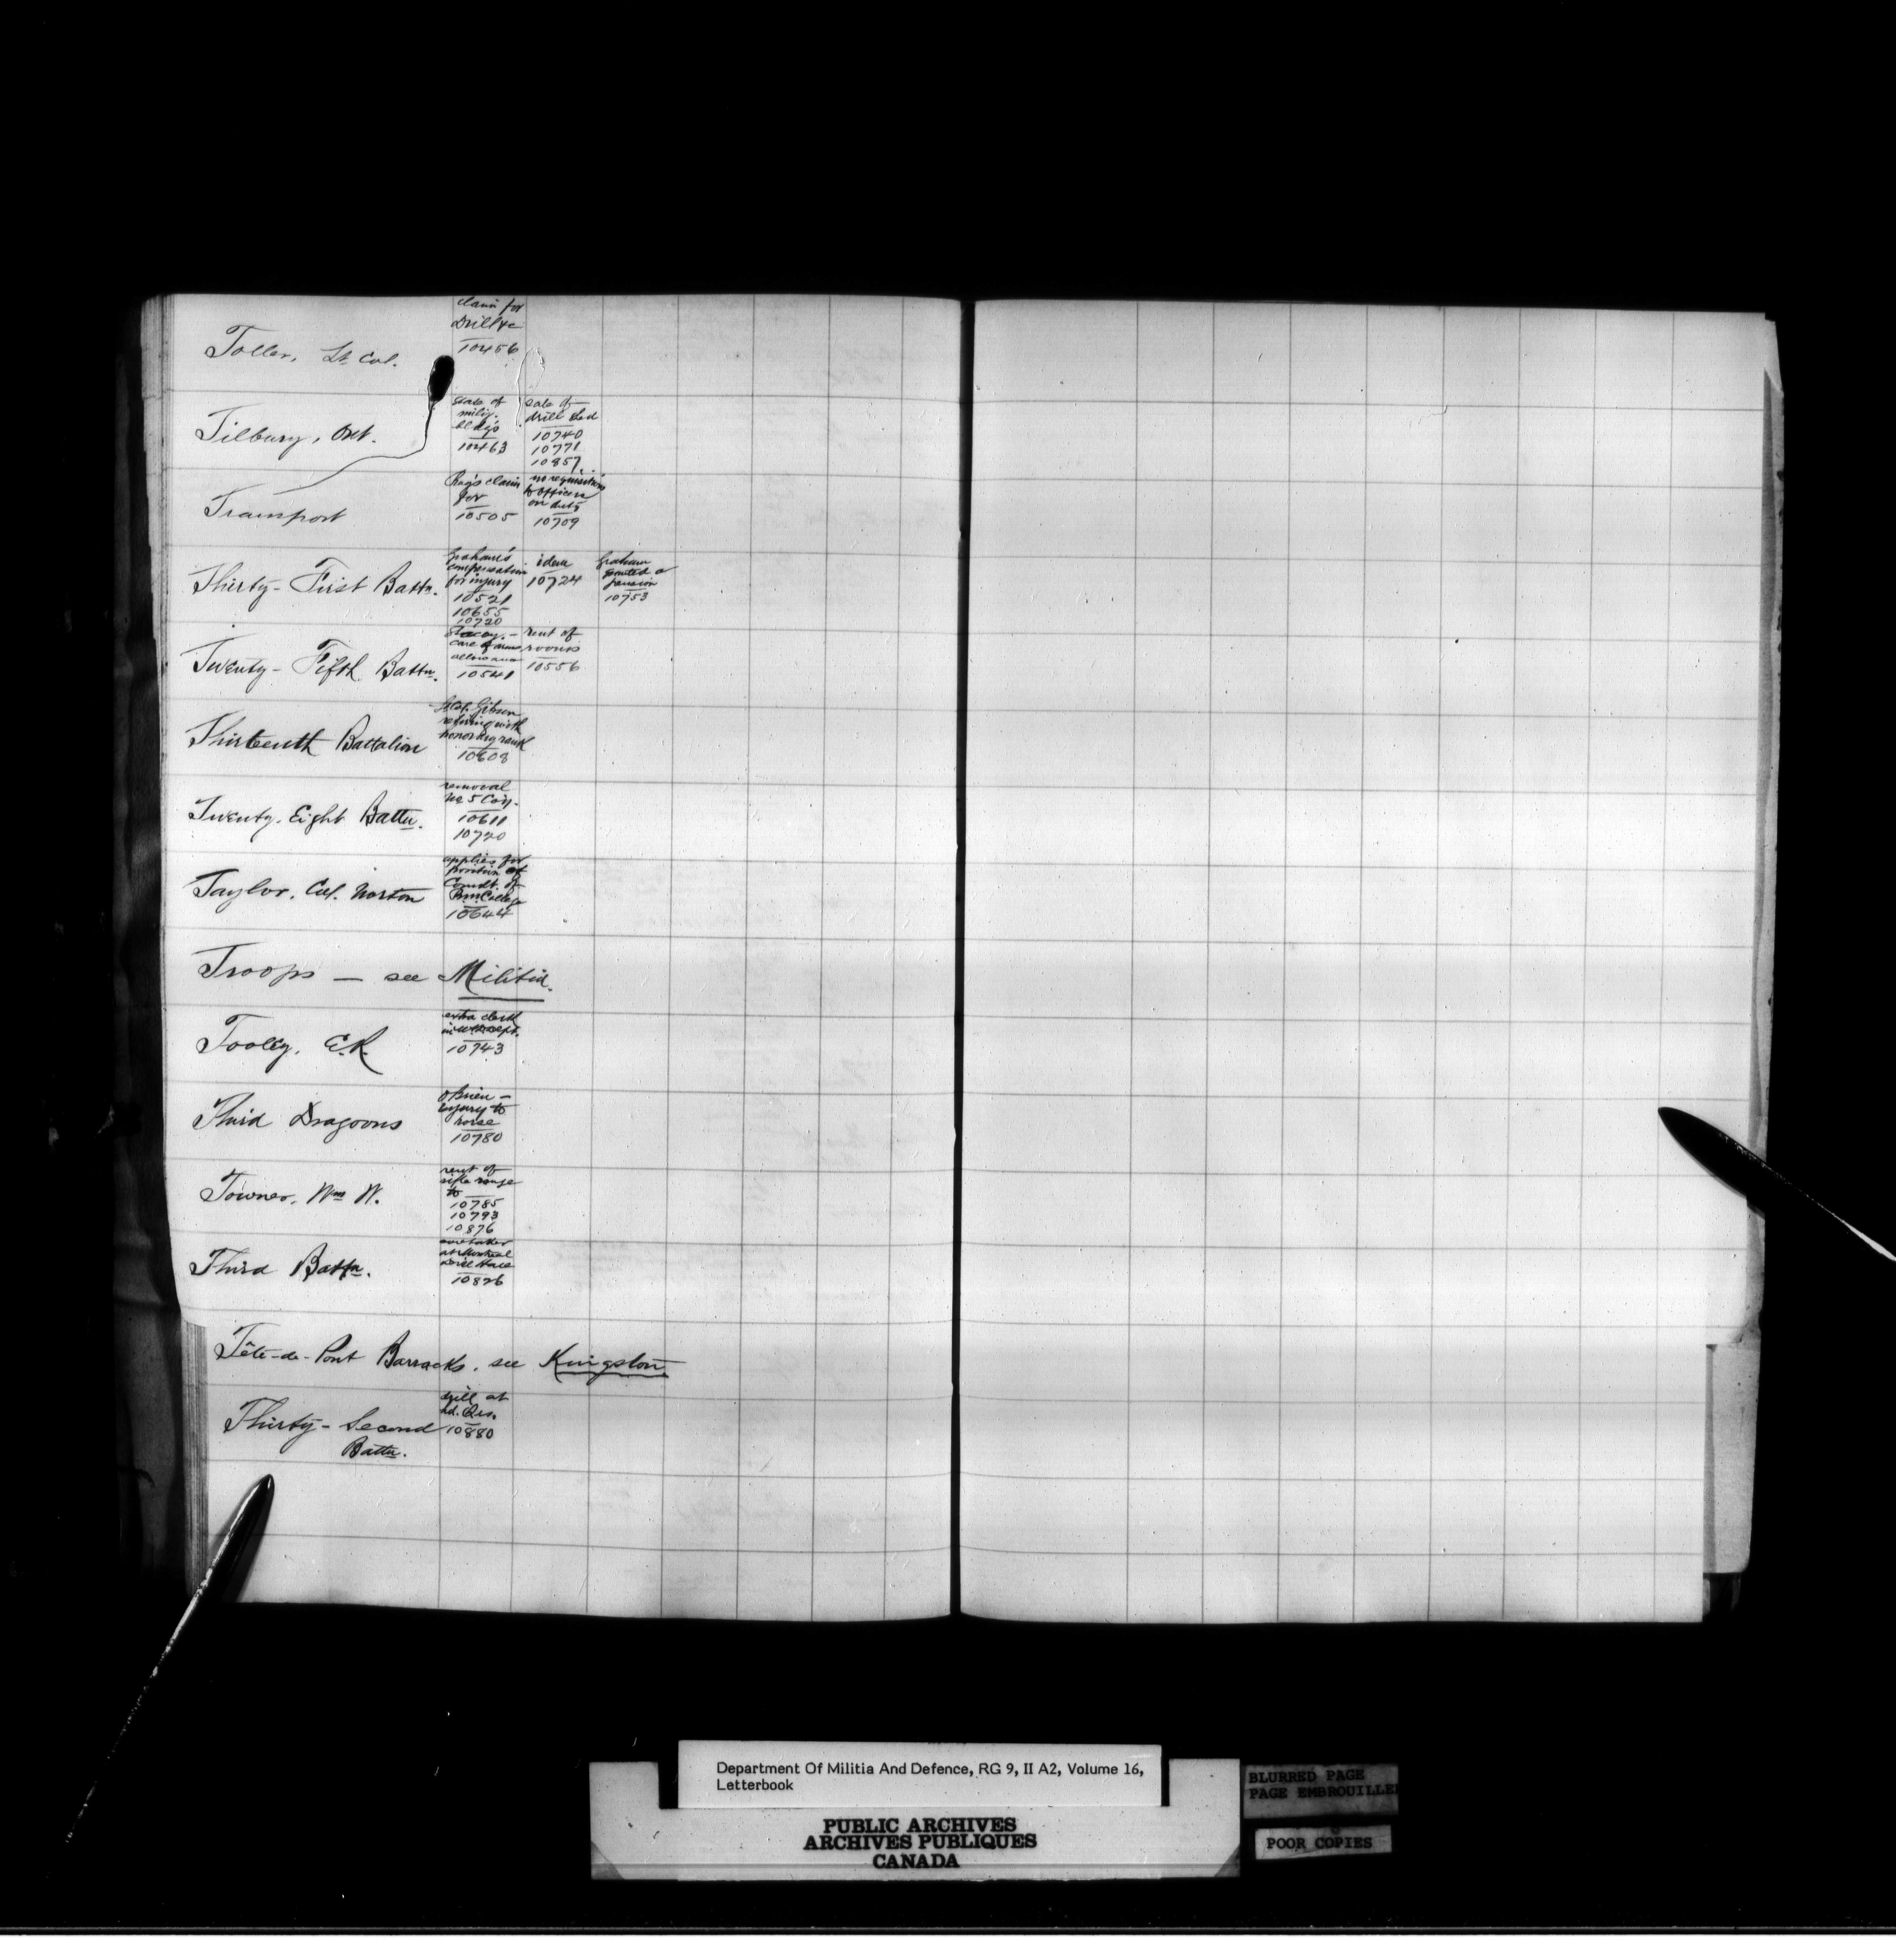 Toller, Lt Col.
claim for
Drill &c
10456
Tilbury, Ont.
state of
mility.
bldgs
10463
sale of
drill shed
10740
10771
10857
Transport
claim
for
10505
no requisitions
to officers
on duty
10709
Thirty-First Battn.
Graham's
compensation
for injury
10521
10655
10720
idem
10724
Graham
granted a
pension
10753
Twenty-Fifth Battn.
care of arms
allowance
10541
rent of
rooms
10556
Thirteenth Battalion
Gibson
retiring with
honorary rank
10603
Twenty. Eight Battn.
removal
No 5 Coy.
10611
10720
Taylor. Col. Norton
applies for
position of
Comdt. of
Rm. College
10644
Troops — see Militia.
Tooley, E.R.
extra clerk
in
10743
Third Dragoons
O'Brien —
injury to
horse
10780
Towner, Wm W.
rent of
rifle range
to
10785
10793
10876
Third Battn.
caretaker
at Montreal
Drill Hall
10826
Tête-de-Pont Barracks. see Kingston
Thirty-Second
Battn.
drill at
Hd. Qrs.
10880
Department Of Militia And Defence, RG 9, II A2, Volume 16,
Letterbook
PUBLIC ARCHIVES
ARCHIVES PUBLIQUES
CANADA
BLURRED PAGE
PAGE EMBROUILLE
POOR COPIES